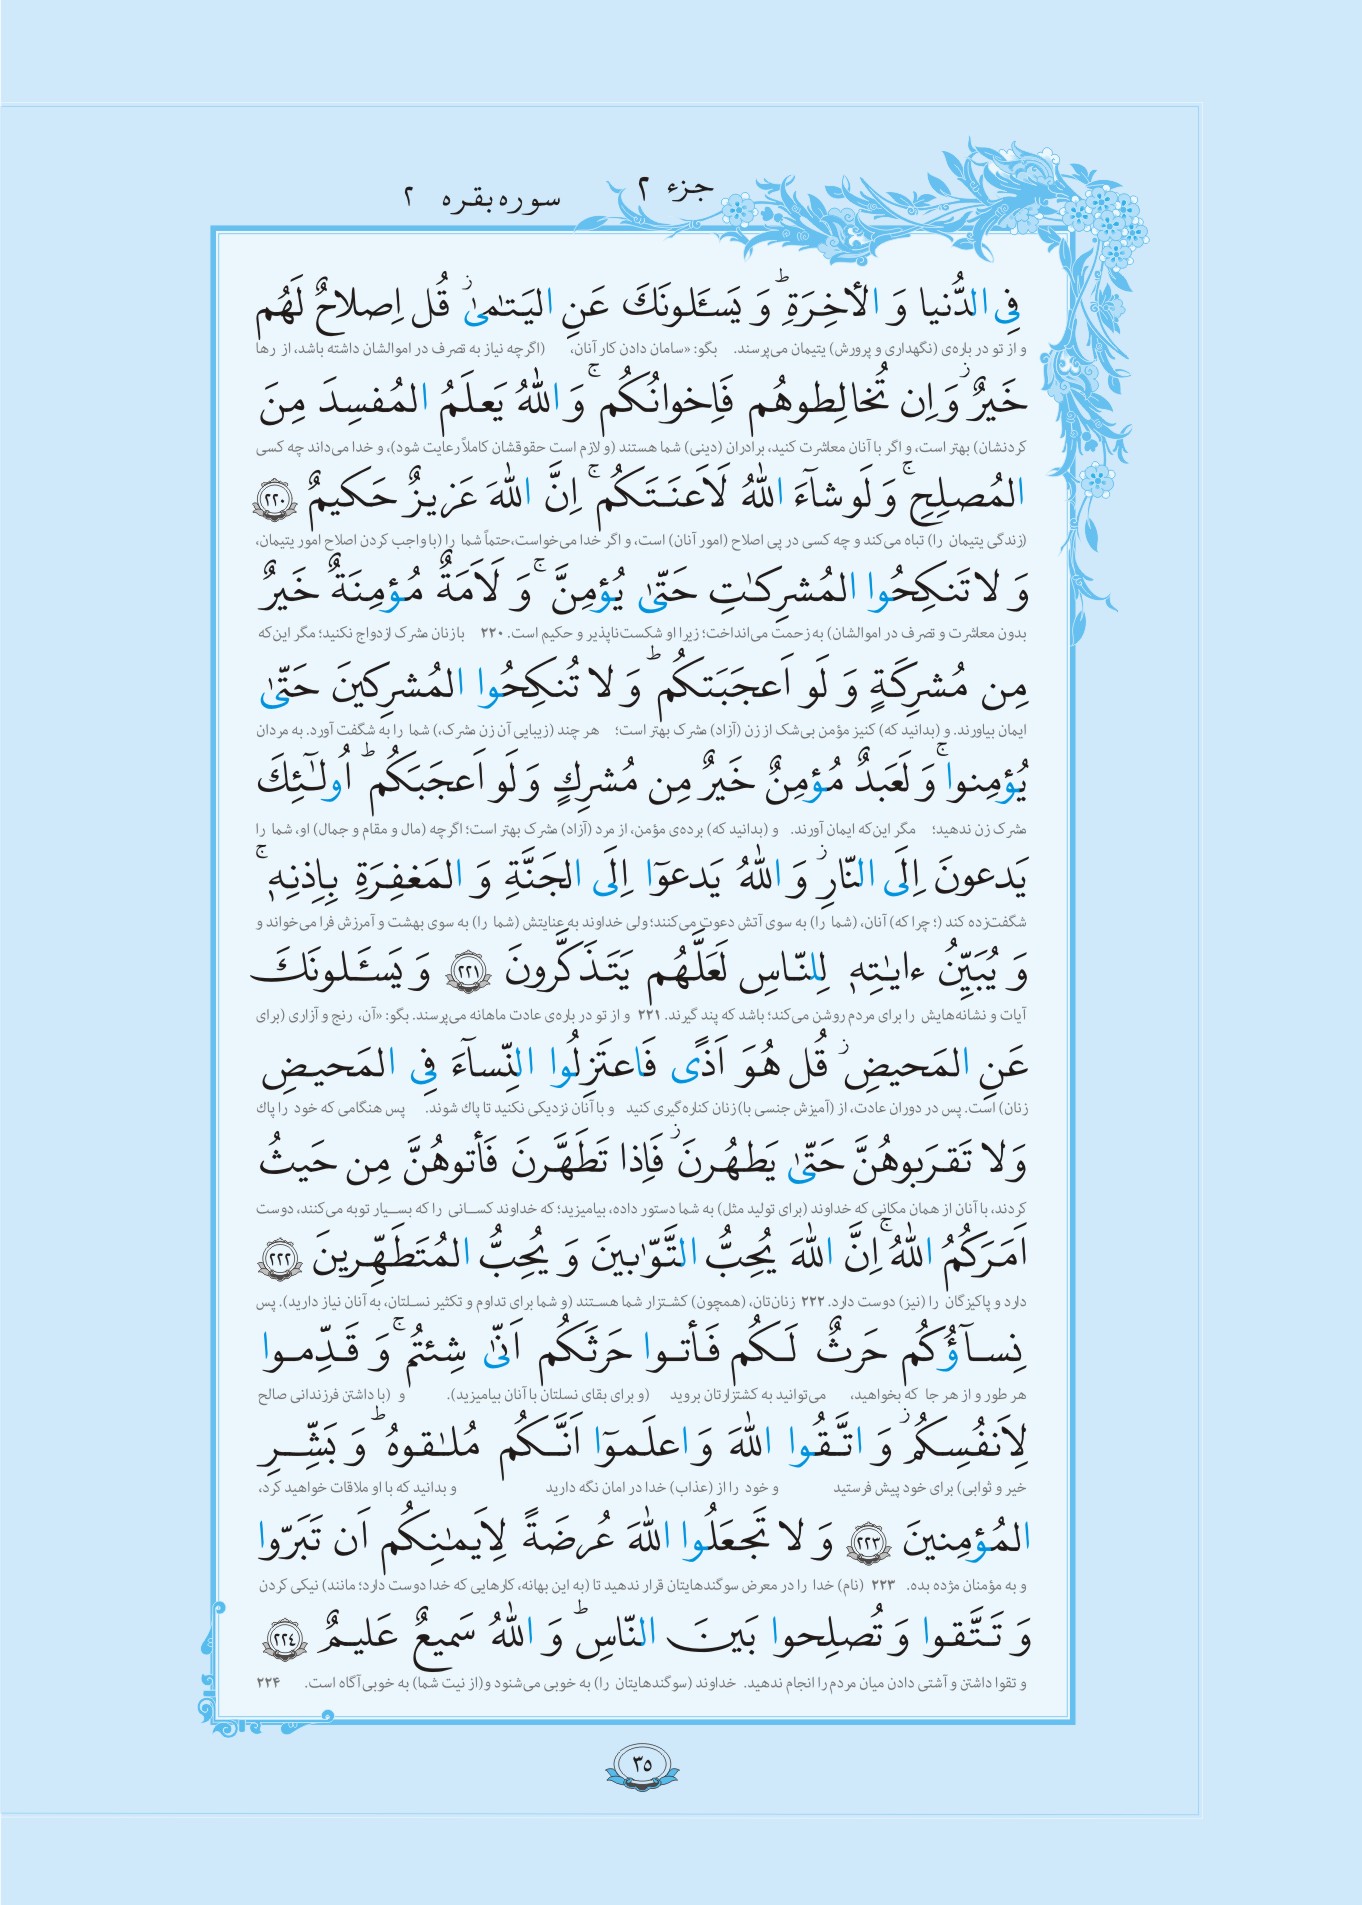 جزء ۲
سوره بقره ۲
فِی الدُّنیا وَ الأخِرَةِ ۗ وَ یَسـَٔلونَكَ عَنِ الیَتٰمیٰ ۖ قُل اِصلاحٌ لَهُم
و از تو در باره‌ی (نگهداری و پرورش) یتیمان می‌پرسند. بگو: «سامان دادن کار آنان، (اگرچه نیاز به تصرف در اموالشان داشته باشد، از رها
خَیرٌ ۖ وَ اِن تُخالِطوهُم فَاِخوانُكُم ۚ وَ اللّٰهُ یَعلَمُ المُفسِدَ مِنَ
کردنشان) بهتر است، و اگر با آنان معاشرت کنید، برادران (دینی) شما هستند (و لازم است حقوقشان کاملاً رعایت شود)، و خدا می‌داند چه کسی
المُصلِحِ ۚ وَ لَو شآءَ اللّٰهُ لَاَعنَتَكُم ۚ اِنَّ اللّٰهَ عَزیزٌ حَكیمٌ ﴿۲۲۰﴾
(زندگی یتیمان را) تباه می‌کند و چه کسی در پی اصلاح (امور آنان) است، و اگر خدا می‌خواست،حتماً شما را (با واجب کردن اصلاح امور یتیمان،
وَ لا تَنكِحُوا المُشرِكٰتِ حَتّیٰ یُؤمِنَّ ۚ وَ لَاَمَةٌ مُؤمِنَةٌ خَیرٌ
بدون معاشرت و تصرف در اموالشان) به زحمت می‌انداخت؛ زیرا او شکست‌ناپذیر و حکیم است. ۲۲۰ با زنان مشرک ازدواج نکنید؛ مگر این‌که
مِن مُشرِكَةٍ وَ لَو اَعجَبَتكُم ۗ وَ لا تُنكِحُوا المُشرِكینَ حَتّیٰ
ایمان بیاورند. و (بدانید که) کنیز مؤمن بی‌شک از زن (آزاد) مشرک بهتر است؛ هر چند (زیبایی آن زن مشرک،) شما را به شگفت آورد. به مردان
یُؤمِنوا ۚ وَ لَعَبدٌ مُؤمِنٌ خَیرٌ مِن مُشرِكٍ وَ لَو اَعجَبَكُم ۗ اُولٰٓئِكَ
مشرک زن ندهید؛ مگر این‌که ایمان آورند. و (بدانید که) برده‌ی مؤمن، از مرد (آزاد) مشرک بهتر است؛ اگرچه (مال و مقام و جمال) او، شما را
یَدعونَ اِلَی النّارِ ۖ وَ اللّٰهُ یَدعوٓا اِلَی الجَنَّةِ وَ المَغفِرَةِ بِاِذنِهٖ ۚ
شگفت‌زده کند (؛ چرا که) آنان، (شما را) به سوی آتش دعوت می‌کنند؛ ولی خداوند به عنایتش (شما را) به سوی بهشت و آمرزش فرا می‌خواند و
وَ یُبَیِّنُ ءایٰتِهٖ لِلنّاسِ لَعَلَّهُم یَتَذَكَّرونَ ﴿۲۲۱﴾ وَ یَسـَٔلونَكَ
آیات و نشانه‌هایش را برای مردم روشن می‌کند؛ باشد که پند گیرند. ۲۲۱ و از تو در باره‌ی عادت ماهانه می‌پرسند. بگو: «آن، رنج و آزاری (برای
عَنِ المَحیضِ ۖ قُل هُوَ اَذًی فَاعتَزِلُوا النِّسآءَ فِی المَحیضِ
زنان) است. پس در دوران عادت، از (آمیزش جنسی با) زنان کناره‌گیری کنید و با آنان نزدیکی نکنید تا پاك شوند. پس هنگامی که خود را پاك
وَلا تَقرَبوهُنَّ حَتّیٰ یَطهُرنَ ۖ فَاِذا تَطَهَّرنَ فَأتوهُنَّ مِن حَیثُ
کردند، با آنان از همان مکانی که خداوند (برای تولید مثل) به شما دستور داده، بیامیزید؛ که خداوند کسـانی را که بسـیار توبه می‌کنند، دوست
اَمَرَكُمُ اللّٰهُ ۚ اِنَّ اللّٰهَ یُحِبُّ التَّوّٰبینَ وَ یُحِبُّ المُتَطَهِّرینَ ﴿۲۲۲﴾
دارد و پاکیزگان را (نیز) دوست دارد. ۲۲۲ زنان‌تان، (همچون) کشتزار شما هستند (و شما برای تداوم و تکثیر نسلتان، به آنان نیاز دارید). پس
نِسآؤُكُم حَرثٌ لَكُم فَأتوا حَرثَكُم اَنّیٰ شِئتُم ۚ وَ قَدِّموا
هر طور و از هر جا که بخواهید، می‌توانید به کشتزارتان بروید (و برای بقای نسلتان با آنان بیامیزید). و (با داشتن فرزندانی صالح
لِاَنفُسِكُم ۖ وَ اتَّقُوا اللّٰهَ وَ اعلَموٓا اَنَّكُم مُلٰقوهُ ۗ وَ بَشِّرِ
خیر و ثوابی) برای خود پیش فرستید و خود را از (عذاب) خدا در امان نگه دارید و بدانید که با او ملاقات خواهید کرد،
المُؤمِنینَ ﴿۲۲۳﴾ وَ لا تَجعَلُوا اللّٰهَ عُرضَةً لِاَیمٰنِكُم اَن تَبَرّوا
و به مؤمنان مژده بده. ۲۲۳ (نام) خدا را در معرض سوگندهایتان قرار ندهید تا (به این بهانه، کارهایی که خدا دوست دارد؛ مانند) نیکی کردن
وَ تَتَّقوا وَ تُصلِحوا بَینَ النّاسِ ۗ وَ اللّٰهُ سَمیعٌ عَلیمٌ ﴿۲۲۴﴾
و تقوا داشتن و آشتی دادن میان مردم را انجام ندهید. خداوند (سوگندهایتان را) به خوبی می‌شنود و (از نیت شما) به خوبی آگاه است. ۲۲۴
۳۵